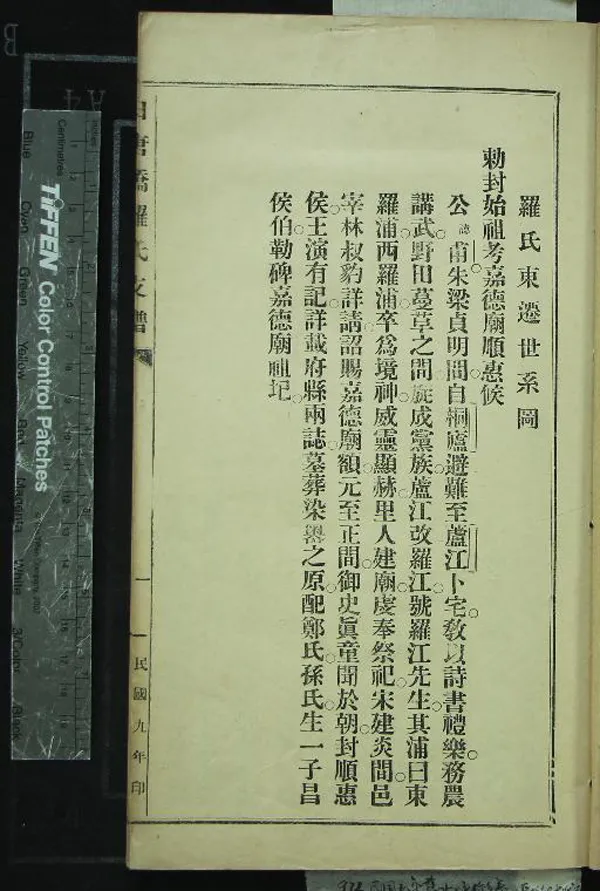 羅氏東遷世系圖
勅封始祖考嘉德廟順惠侯
公諱甫朱梁貞明間自桐廬避難至蘆江卜宅敎以詩書禮樂務農
講武野田蔓草之間旋成黨族蘆江改羅江號羅江先生其浦曰東
羅浦西羅浦卒爲境神威靈顯赫里人建廟虔奉祭祀宋建炎間邑
宰林叔豹詳請詔賜嘉德廟額元至正間御史眞童聞於朝封順惠
侯王演有記詳載府縣兩誌墓葬染嶴之原配鄭氏孫氏生一子昌
侯伯勒碑嘉德廟祖圯
唐橋羅氏支譜
一
民國九年印
TIFFEN Color Control Patches
Centimetres
Inches
Blue
Cyan
Green
Yellow
Red
Magenta
White
3/Color
Black
A4
B